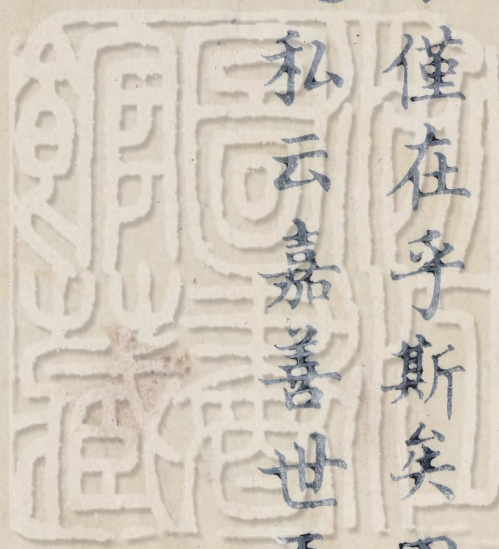 僅在乎斯矣
私云嘉善世